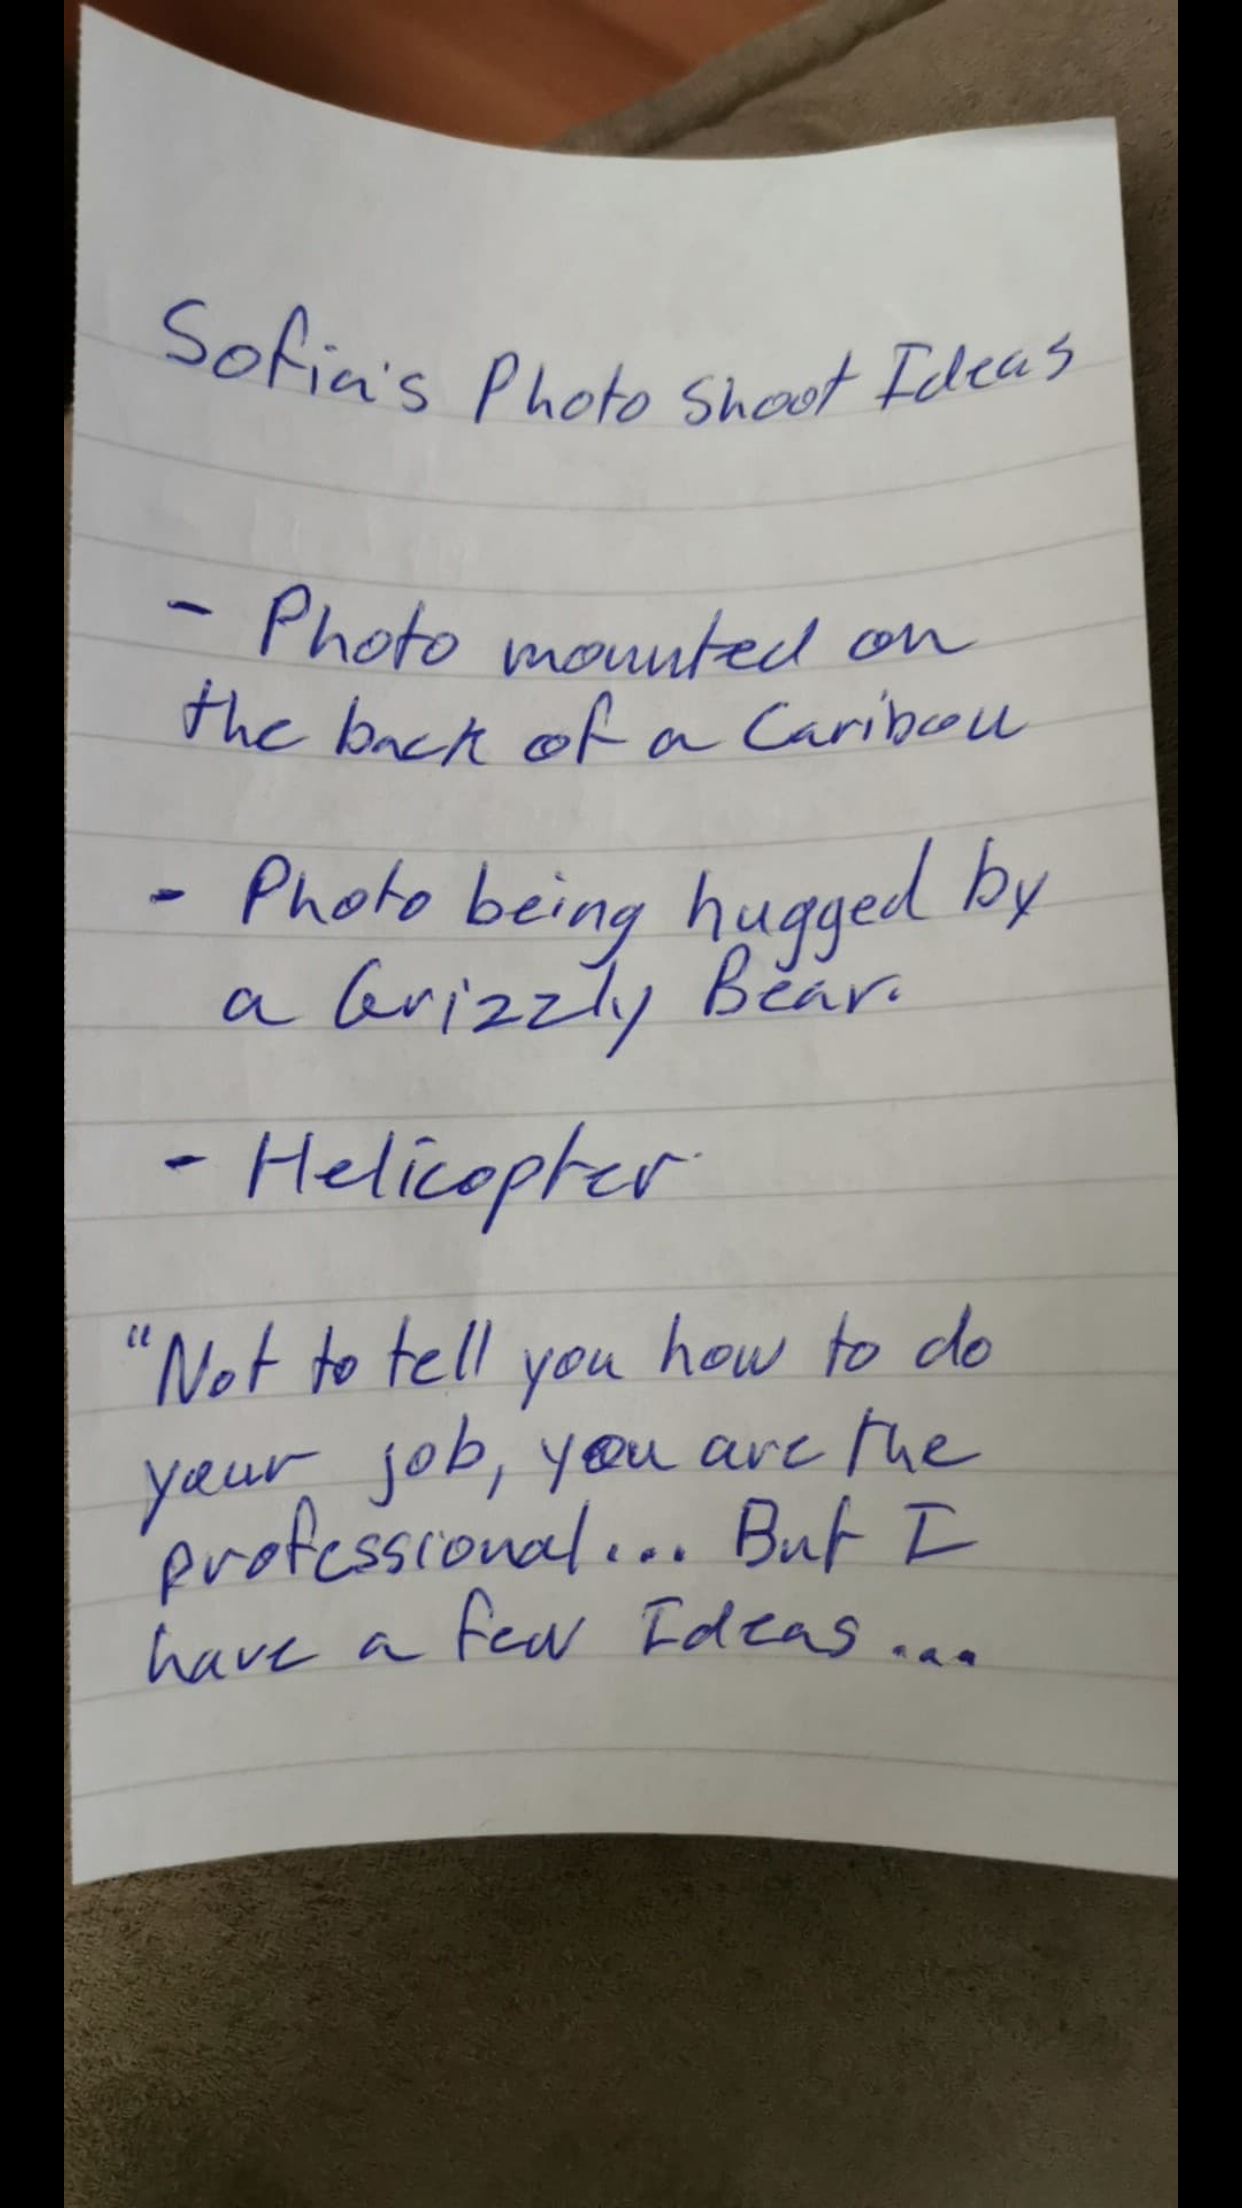 Sofia's Photo Shoot Ideas
- Photo mounted on
the back of a Caribou
- Photo being hugged by
a Grizzly Bear.
- Helicopter
"Not to tell you how to do
your job, you are the
professional... But I
have a few Ideas...